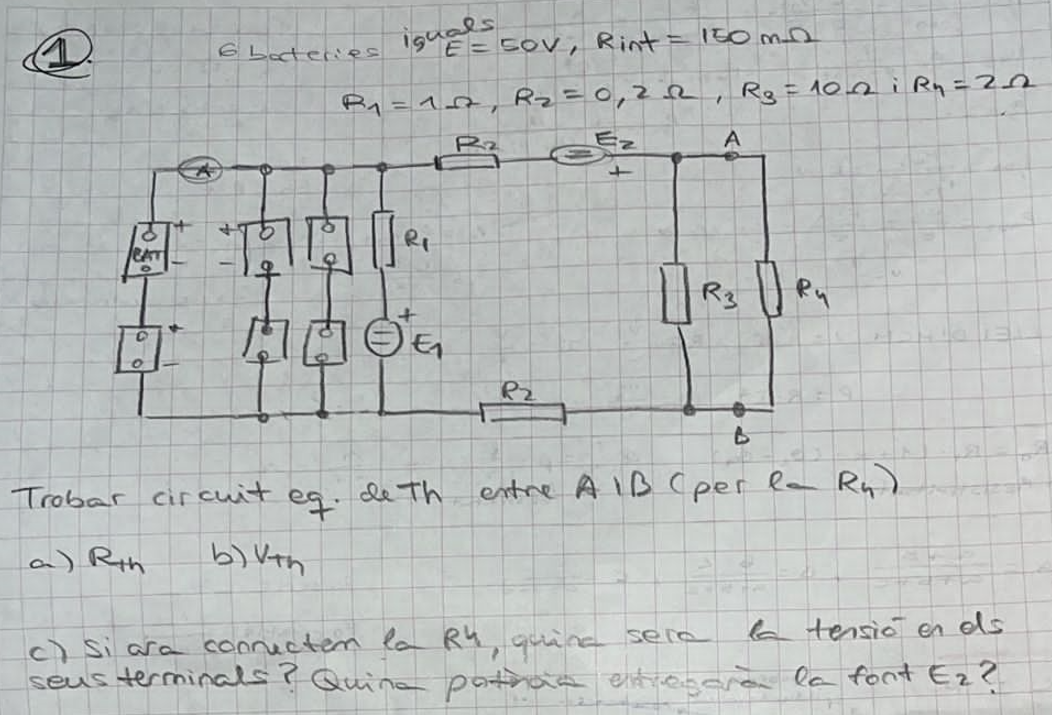 1.
6 bateries iguals E = 50V, Rint = 150 mΩ
R1 = 1Ω, R2 = 0,2Ω, R3 = 10Ω i R4 = 2Ω
A R2 E2 A
+
+ + -
BAT - R1
R3 R4
+ - + E1
R2
B
Trobar circuit eq. de Th entre A i B (per la R4)
a) Rth b) Vth
c) Si ara connectem la R4, quina sera la tensió en els
seus terminals? Quina potència entregarà la font E2?